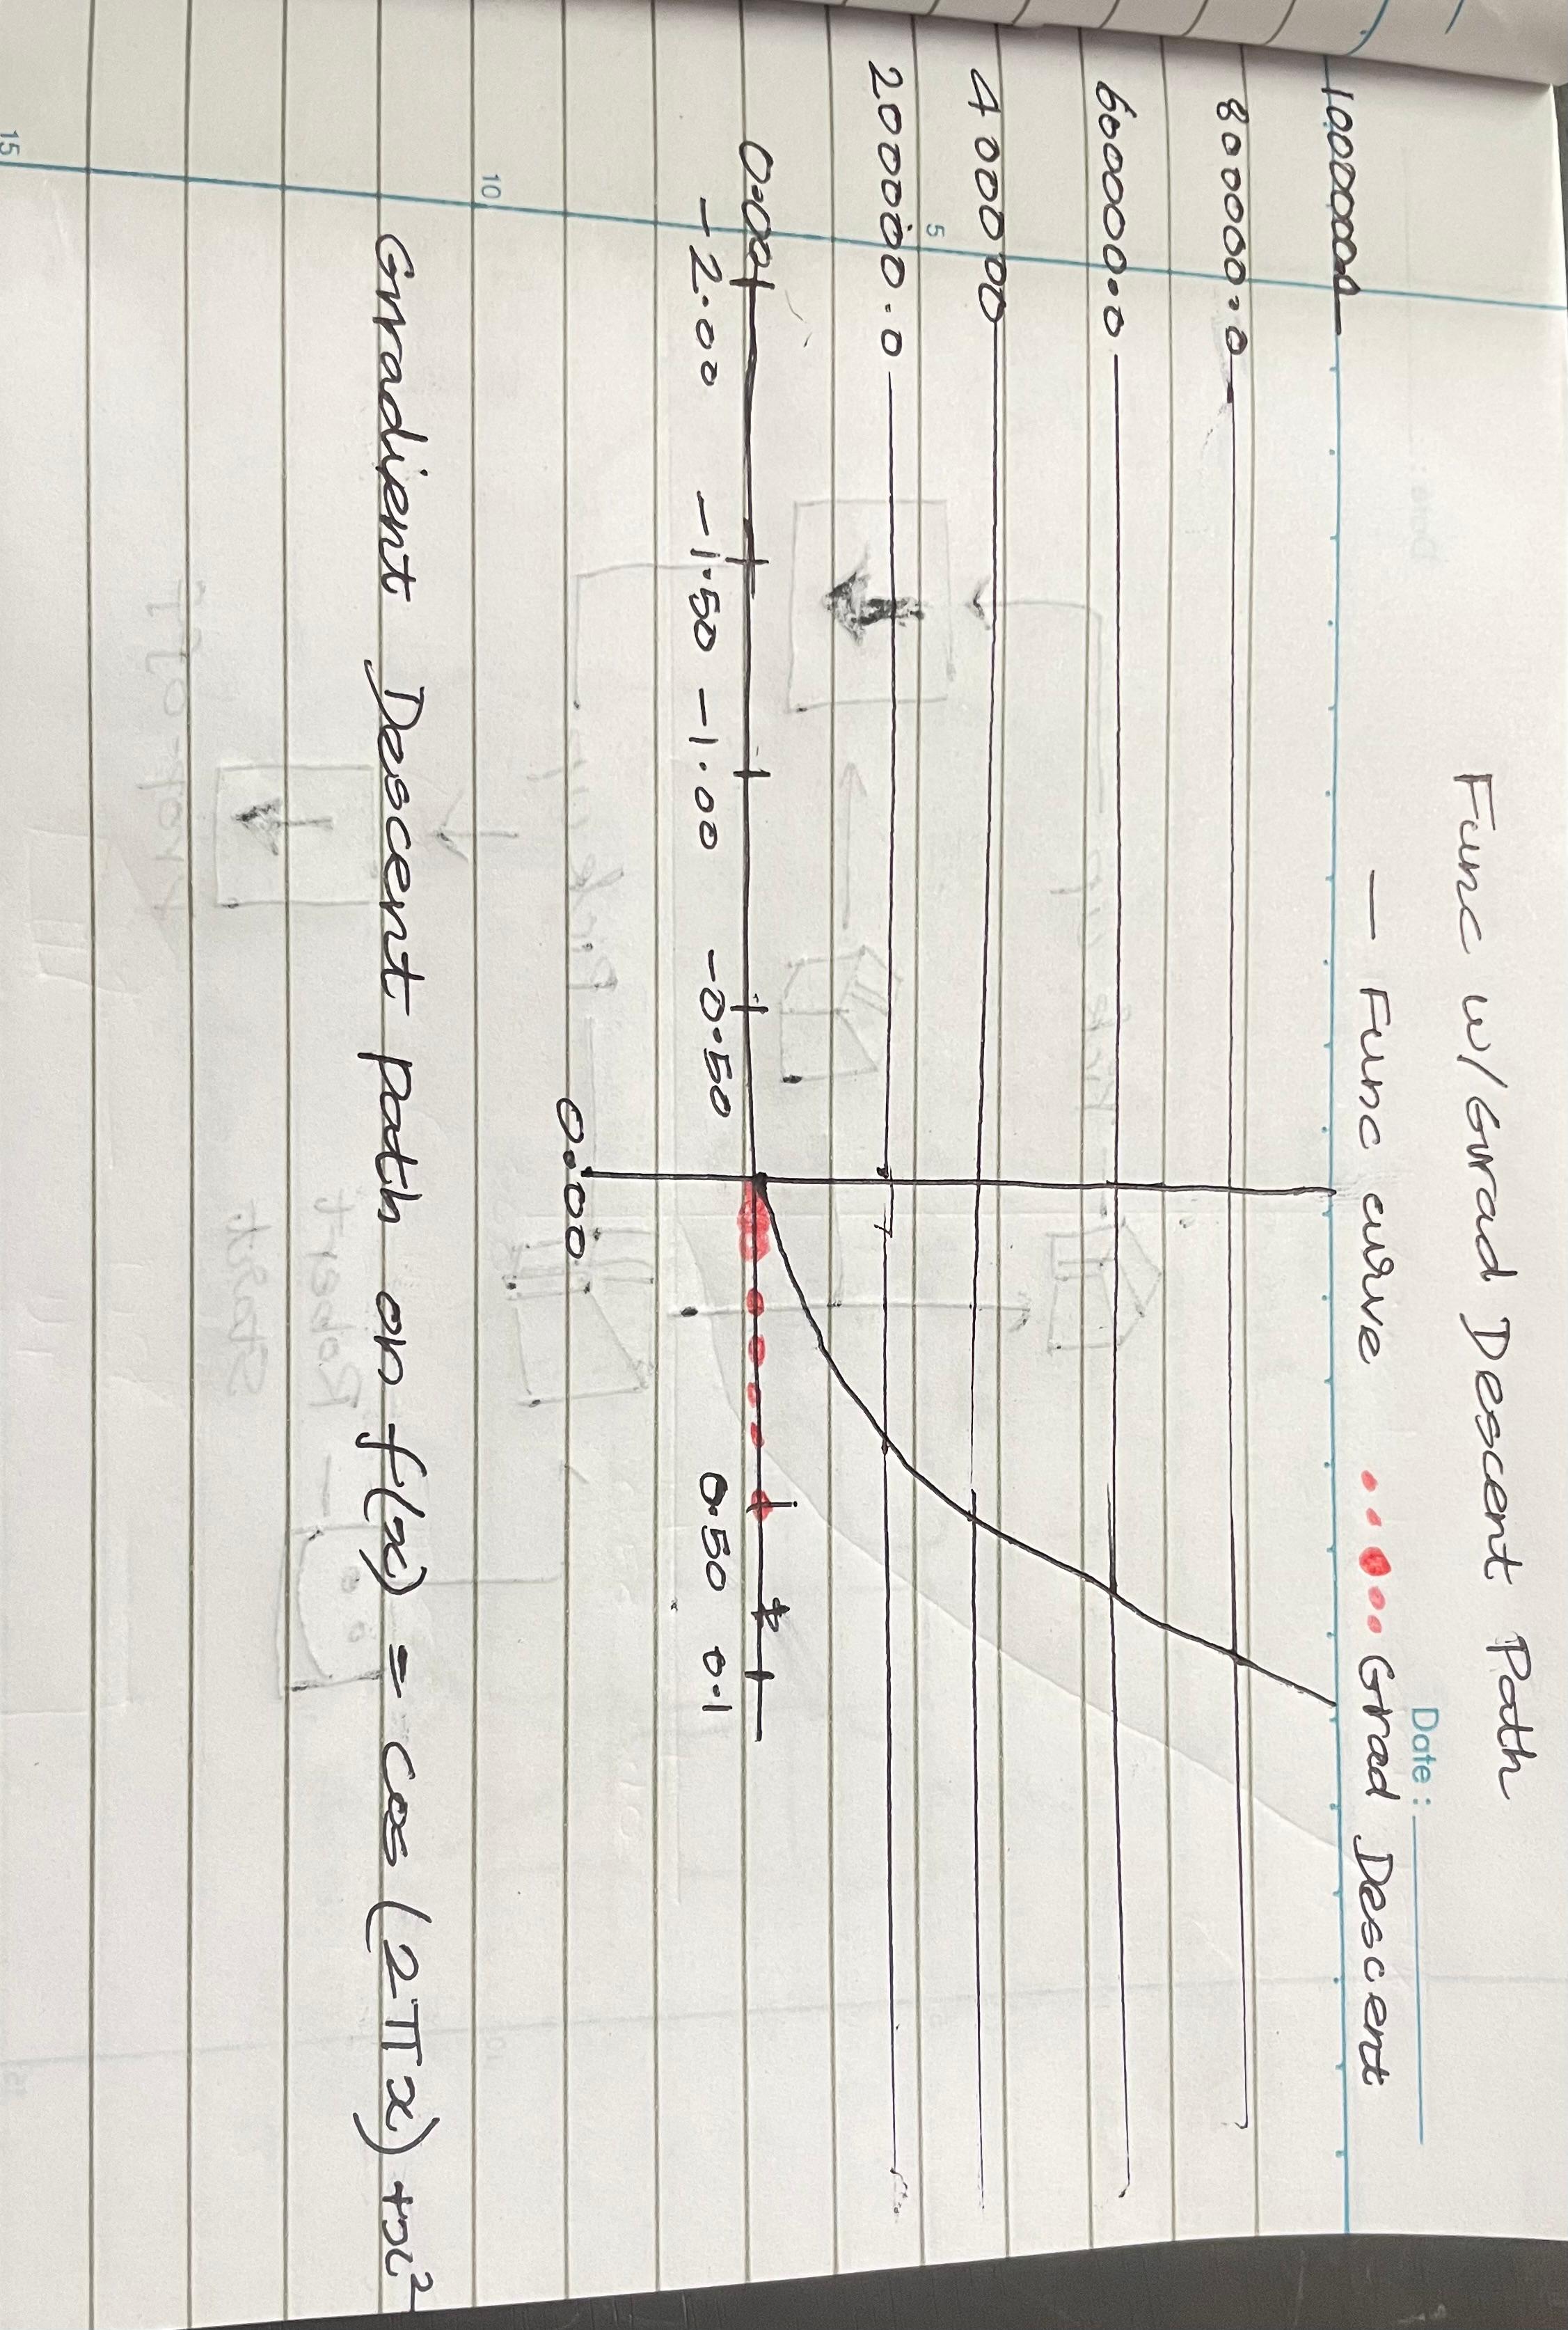 Func w/Grad Descent Path
Date :
— Func curve •••••• Grad Descent
1000000
800000.0
600000.0
400000
200000.0
0.00
-2.00 -1.50 -1.00 -0.50 0.50 0.1
0.00
Gradient Descent path on f(x) = cos (2πx) +x²
5
10
15